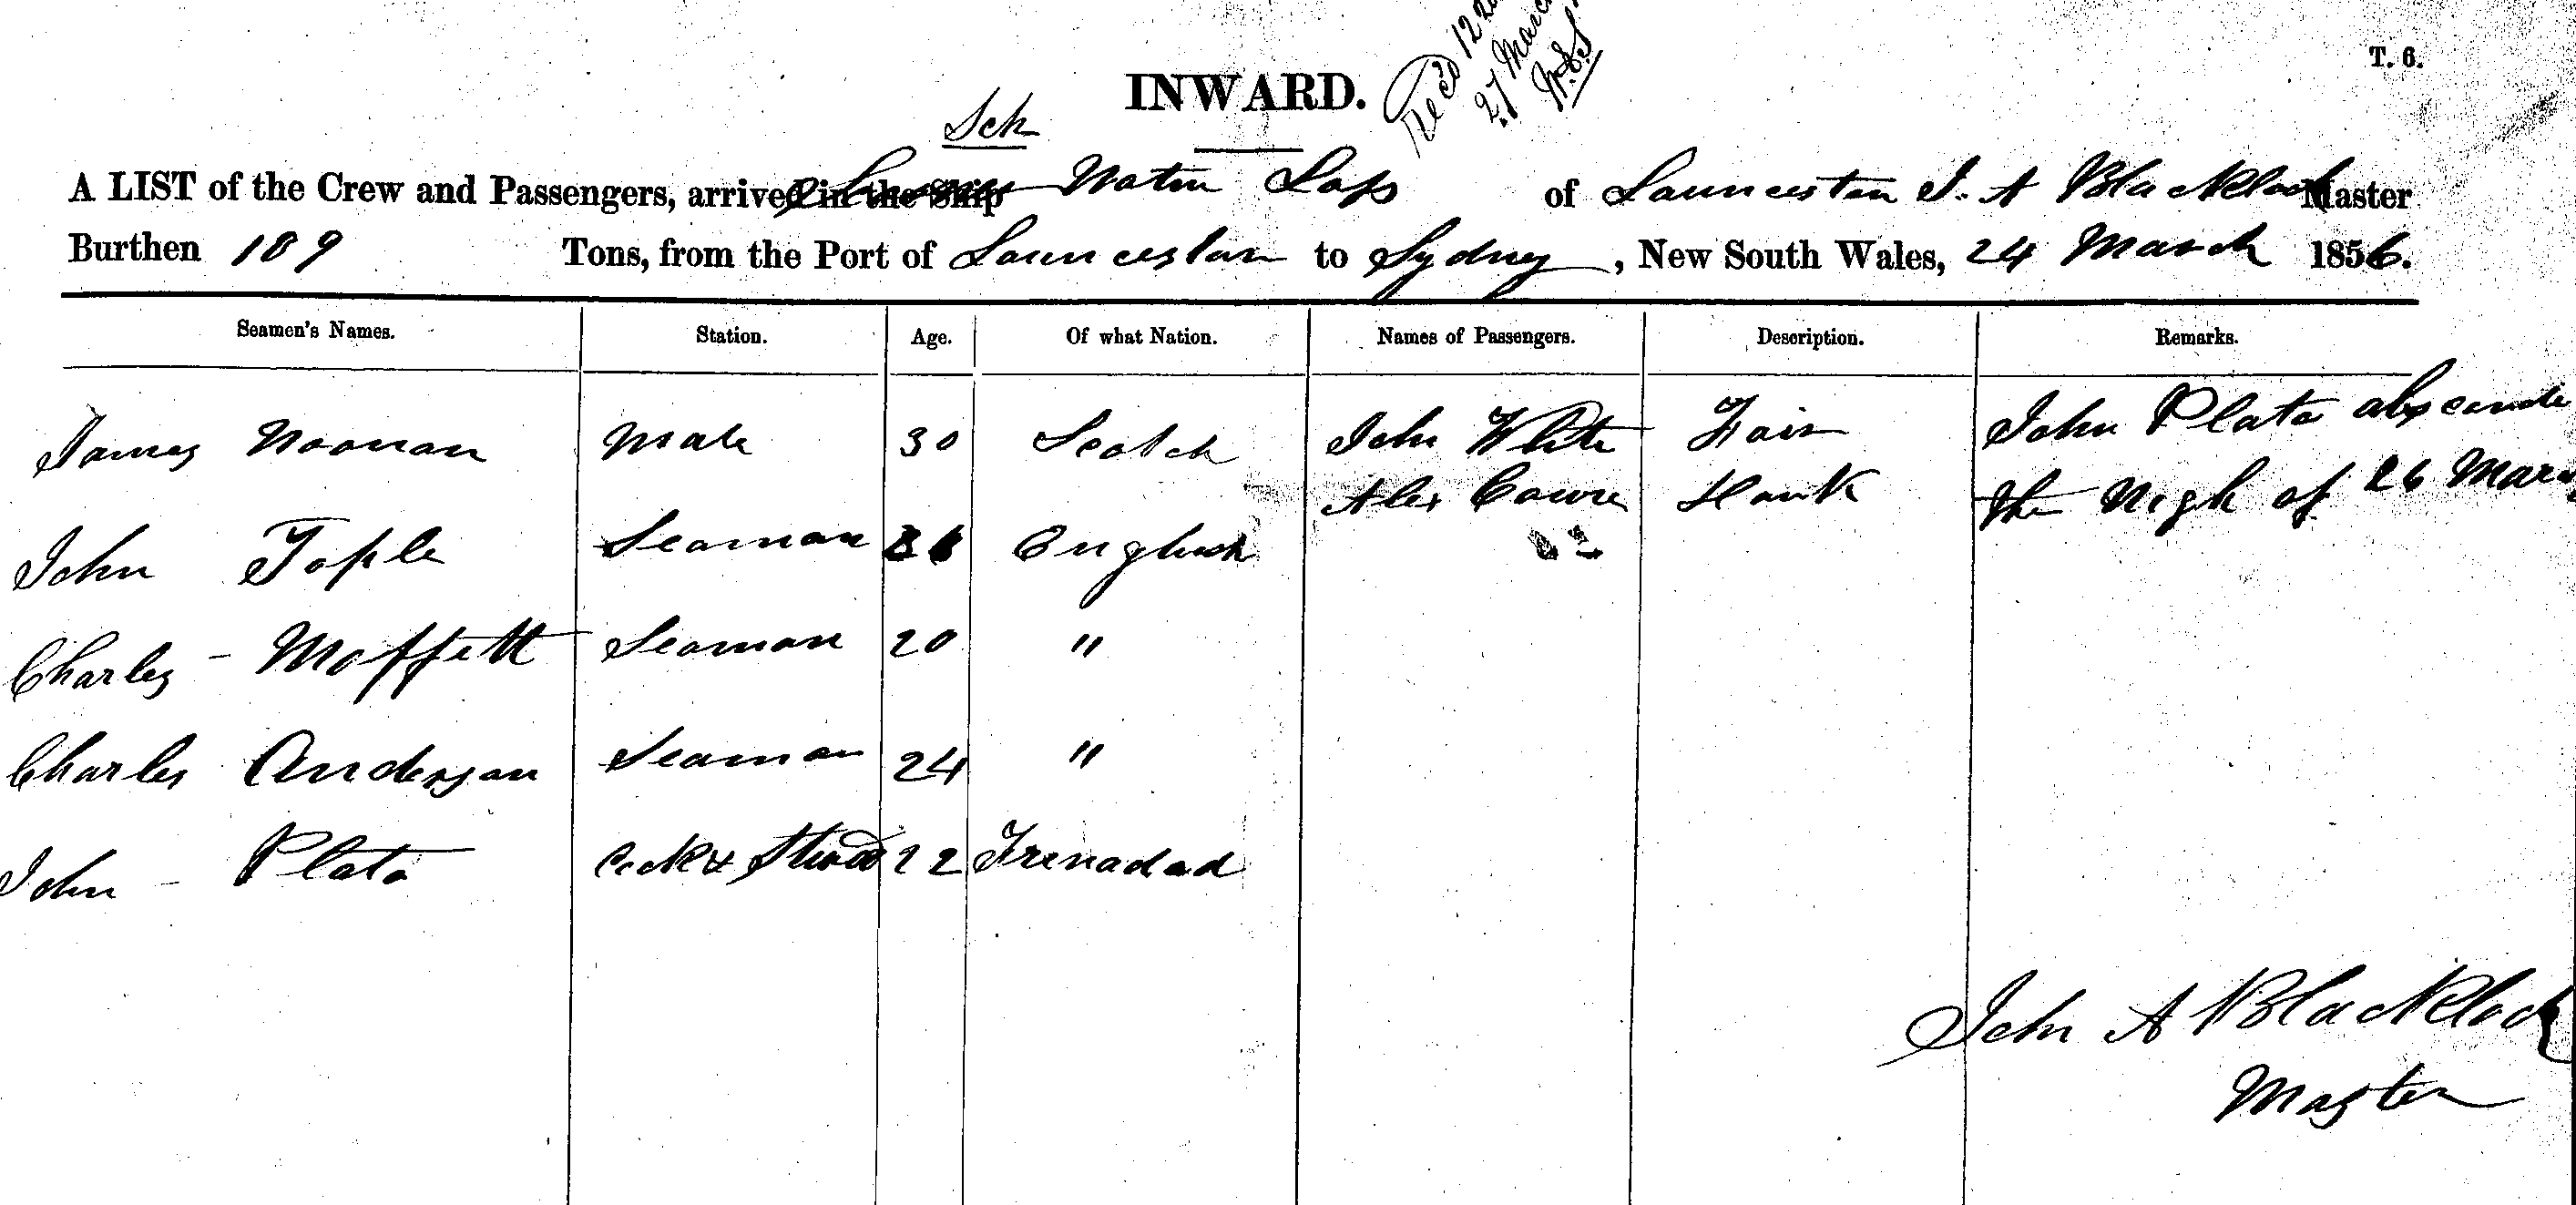 T. 6.
INWARD.
Rec'd 12
27 March
Sch
A LIST of the Crew and Passengers, arrived in the Ship Water Lass of Launceston J. A Blacklock Master
Burthen 109 Tons, from the Port of Launceston to Sydney, New South Wales, 24 March 1856.
Seamen's Names. Station. Age. Of what Nation. Names of Passengers. Description. Remarks.
James Noonan Mate 30 Scotch John White Fair John Plato absconde
Alex the Nigh of 26 Marc
John Tople Seaman English
Charles - Moffett Seaman 20 "
Charles Anderson Seaman 24 "
John - Plato Cook & Stuard 22 Trenadad
John A Blacklock
Master